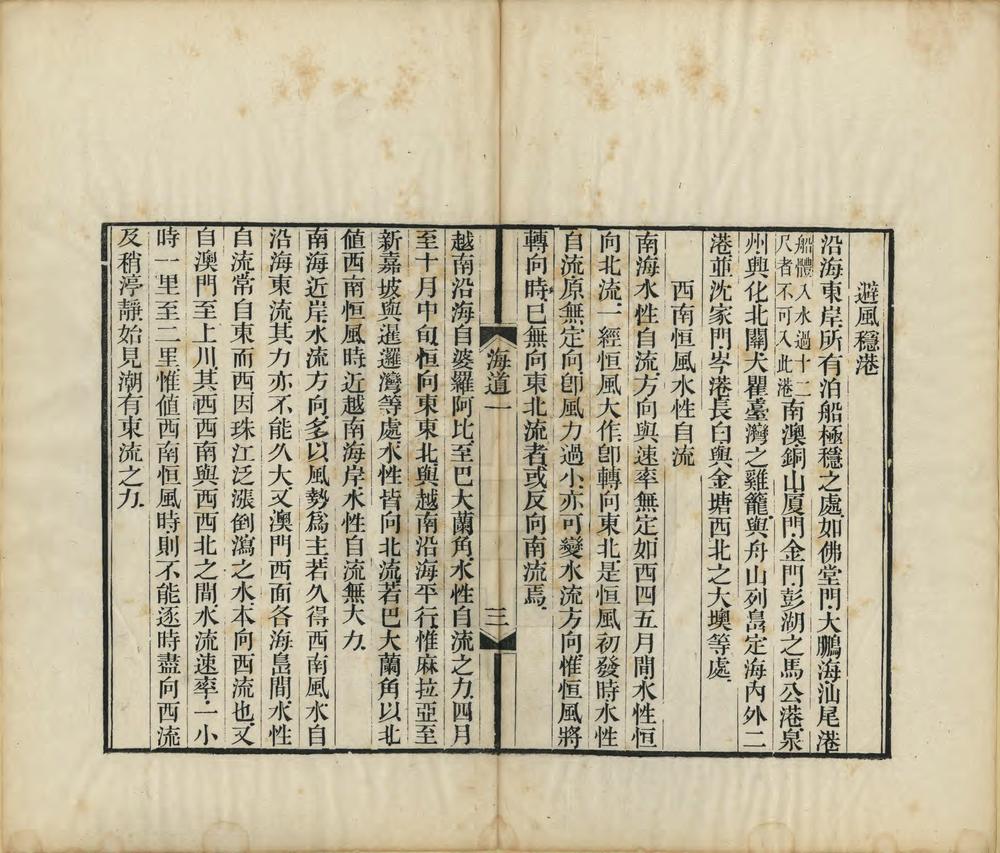 避風穩港
沿海東岸所有泊船極穩之處如佛堂門大鵬海汕尾港
船體入水過十二尺者不可入此港南澳銅山厦門金門彭湖之馬公港泉
州興化北關大瞿臺灣之雞籠與舟山列島定海內外二
港並沈家門岑港長白與金塘西北之大墺等處
西南恒風水性自流
南海水性自流方向與速率無定如西四五月間水性恒
向北流一經恒風大作卽轉向東北是恒風初發時水性
自流原無定向卽風力過小亦可變水流方向惟恒風將
轉向時已無向東北流者或反向南流焉
海道一
三
越南沿海自婆羅阿比至巴大蘭角水性自流之力四月
至十月中旬恒向東東北與越南沿海平行惟麻拉亞至
新嘉坡與暹邏灣等處水性皆向北流若巴大蘭角以北
値西南恒風時近越南海岸水性自流無大力
南海近岸水流方向多以風勢爲主若久得西南風水自
沿海東流其力亦不能久大又澳門西面各海島間水性
自流常自東而西因珠江泛漲倒瀉之水本向西流也又
自澳門至上川其西西南與西西北之間水流速率一小
時一里至二里惟値西南恒風時則不能逐時盡向西流
及稍渟靜始見潮有東流之力